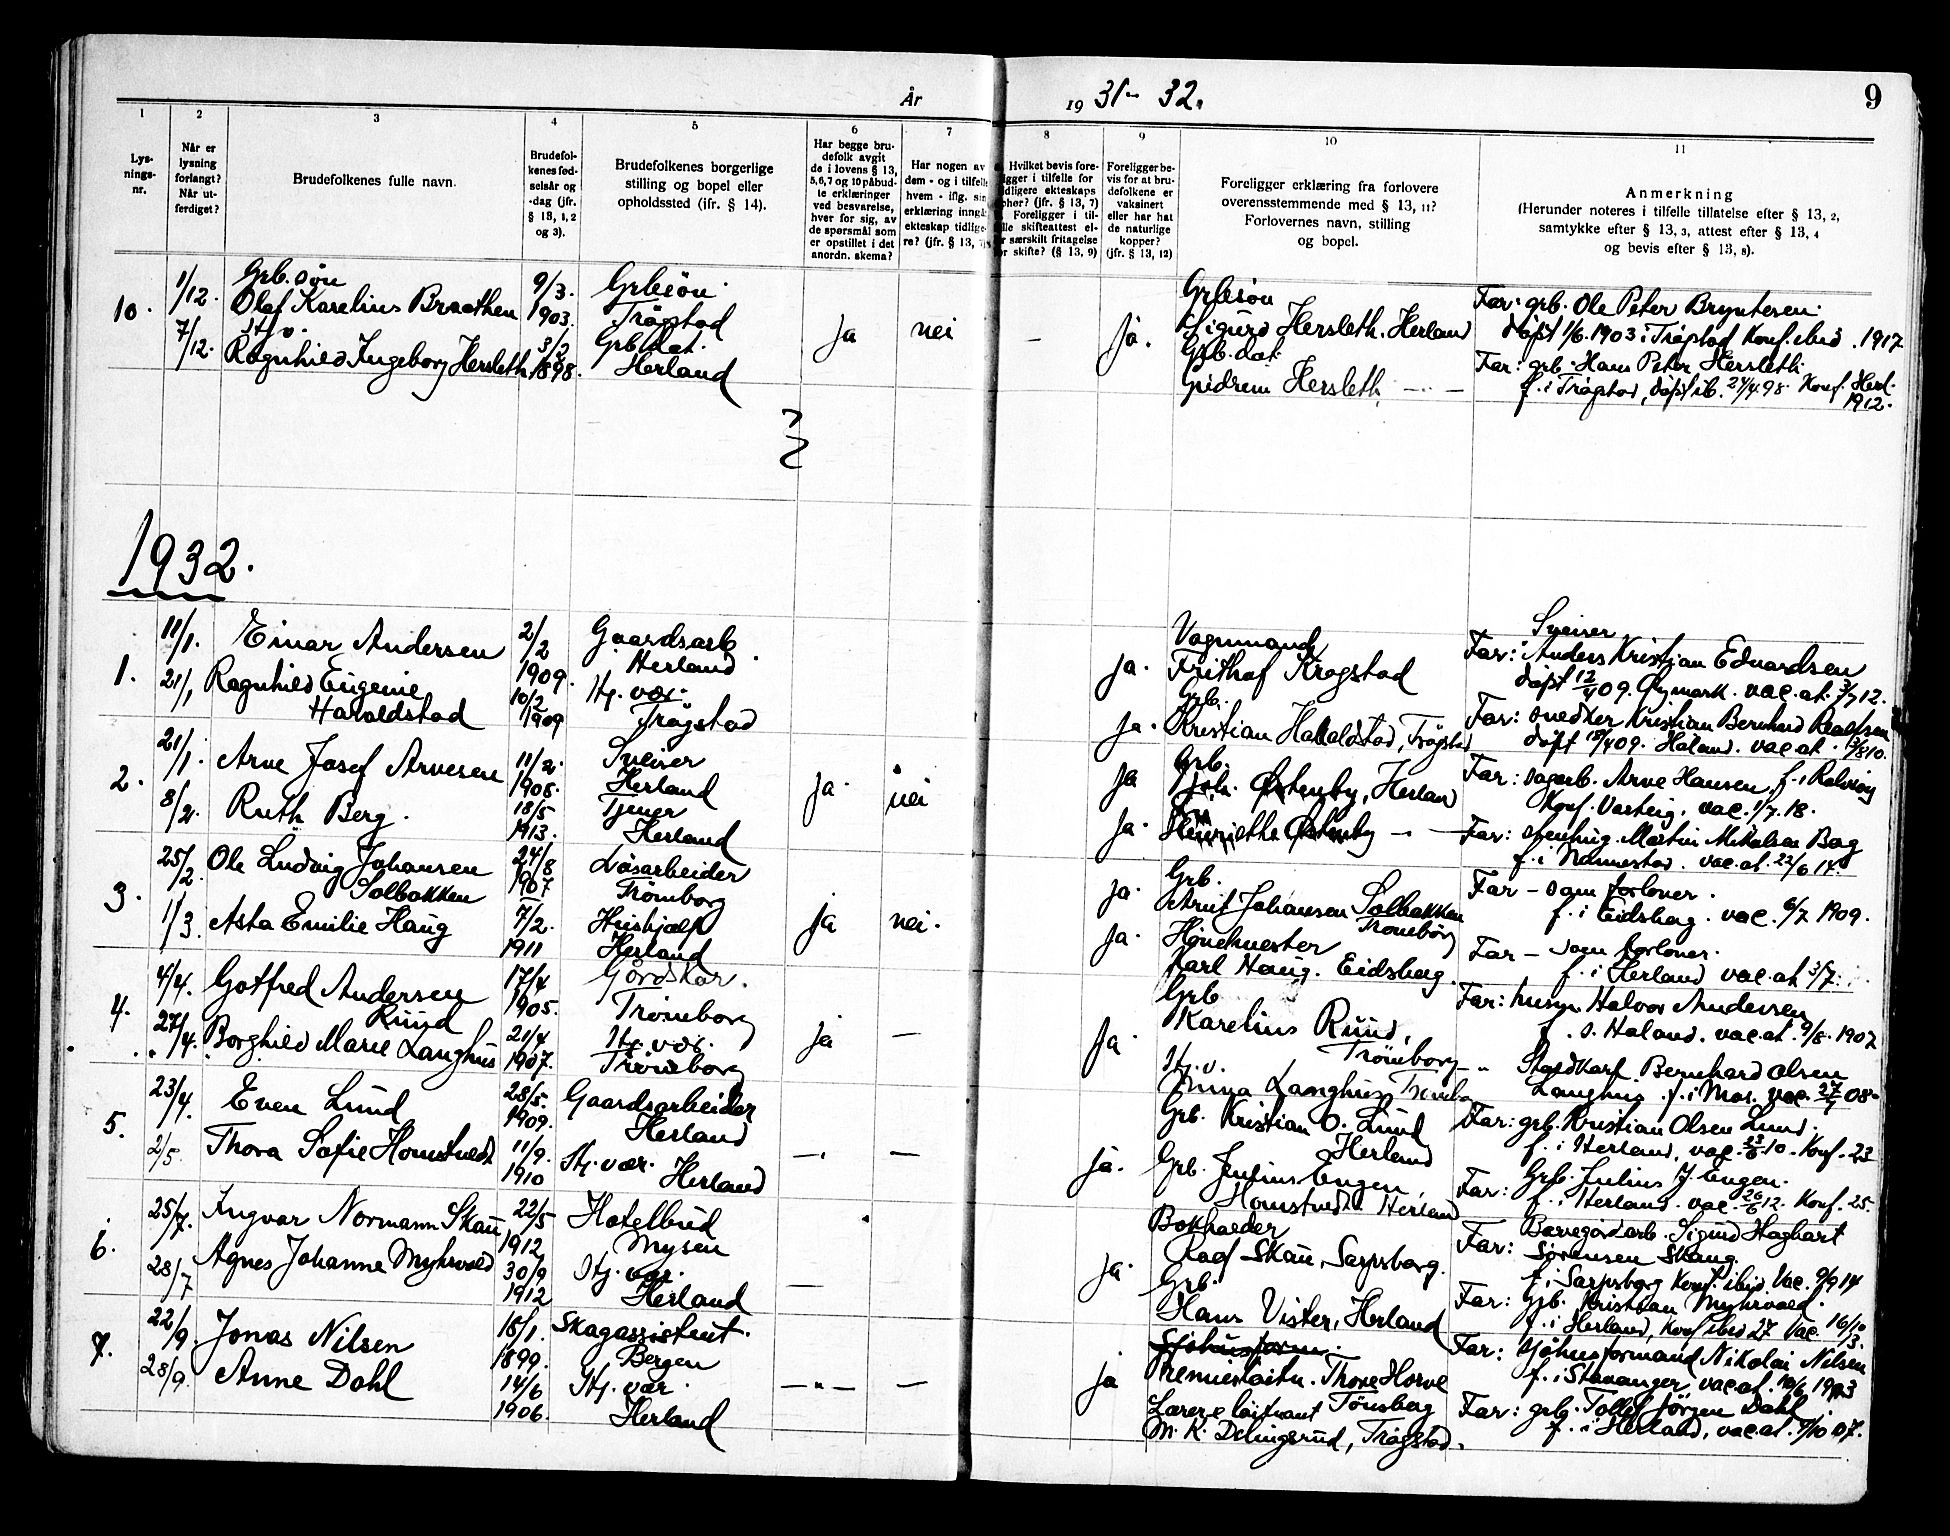 År 1931-32.
9
1
2
3
4
5
6
7
8
9
10
11
Lysningsnr.
Når er lysning forlangt? Når utferdiget?
Brudefolkenes fulle navn.
Brudefolkenes fødselsår og -dag (jfr. § 13, 1, 2 og 3).
Brudefolkenes borgerlige stilling og bopel eller opholdssted (ifr. § 14).
Har begge brudefolk avgit de i lovens § 13, 5, 6, 7 og 10 påbudte erklæringer ved besvarelse, hver for sig, av de spørsmål som er opstillet i det anordn. skema?
Har nogen av dem - og i tilfelle hvem - iflg. sin erklæring inngå ekteskap tidligere? (jfr. § 13,
Hvilket bevis foreligger i tilfelle for tidligere ekteskaps ophør? (jfr. § 13, 7) Foreligger i tilfelle skifteattest eller særskilt fritagelse for skifte? (§ 13, 9)
Foreligger bevis for at brudefolkene er vaksinert eller har hat de naturlige kopper? (jfr. § 13, 12)
Foreligger erklæring fra forlovere overensstemmende med § 13, 11? Forlovernes navn, stilling og bopel.
Anmerkning
(Herunder noteres i tilfelle tillatelse efter § 13, 2, samtykke efter § 13, 3, attest efter § 13, 4 og bevis efter § 13, 8).
10. 1/12. Grb. søn 9/3. Grbsøn
Olaf Karelius Braathen 1903, Trøgstad
7/12. Stj.v. 3/2 Grb.dat.
Ragnhild Ingeborg Hersleth 1898. Herland
ja nei - ja.
Grbsøn
Sigurd Hersleth, Herland
Grb. dat.
Hersleth —
Far: grb. Ole Peter Bryntesen
døpt 1/6. 1903 i Trøgstad Konf. ibid. 1917
Far: grb. Hans Peter Hersleth
f. i Trøgstad, døpt ib. 24/4 98. Konf. Herl. 1912.
1932.
1. 11/1. Einar Andersen 2/2 1909. Gaardsarb. Herland
21/1 Ragnhild Eugenie Haraldstad 10/2 1909 Stj. vær. Trøgstad
ja. Vognmand
Frithof Krogstad
ja. Grb.
Kristian Haraldstad, Trøgstad
Sveiser
Far: Anders Kristian Edvardsen
døpt 12/4 09. Øymark. vac.at. 3/7 12.
Far: snedker Kristian Bernhard
døpt 18/4 09. Høland. vac.at.
2. 21/1. Arne Josef Arnesen 11/2. 1908. Sveiser Herland
8/2. Ruth Berg. 18/5 1913. Tjener Herland
ja. nei
ja Grb.
Joh. Østenby, Herland
ja. Henriette Østenby — —
Far: dagarb. Arne Hansen, f. i Rakvåg
Konf. Varteig, vac. 1/7. 18.
Far: Martin Mikalsen Berg
f. i Nannestad. vac.at. 22/6 14.
3. 25/2. Ole Ludvig Johansen Solbakken 24/8 1907 Løsarbeider Trømborg
1/3. Asta Emilie Haug 7/2. 1911 Hushjælp Herland
ja nei.
ja. Grb.
Arnt Johansen Solbakken Trømborg
ja. Hønchmester
Karl Haug. Eidsberg.
Far - som forlover.
f. i Eidsberg. vac. 6/7 1909.
Far - som forlover.
f. i Herland vac.at 3/7.
4. 4/4. Gotfred Andersen Ruud 17/4 1905. Gårdskar. Trømborg
27/4. Borghild Marie Langhus 21/4 1907. Stj. vær. Trømborg
ja —
ja. Grb
Karelius Ruud, Trømborg
Stj. v.
Langhus
Far: husm Halvor Andersen
f. i Høland. vac.at. 9/8. 1907
— " Staldkarl Bernhard Olsen
Langhus. f. i Mos. vac. 27/9 08.
5. 23/4. Even Lund 28/5. 1909. Gaardsarbeider Herland
2/5. Thora Sofie Homstvedt 11/9. 1910 Stj. vær. Herland
—. —
ja. Grb. Kristian O. Lund Herland
Grb. Julius Engen,
Homstvedt Herland
Far: grb. Kristian Olsen Lund.
f. i Herland, vac. 10. Konf. 23
Far: Grb. Julius J. Engen.
f. i Herland. vac. 26/6 12. Konf. 25.
6. 25/7. Ingvar Normann Skau 22/5 1912 Hotelbud Mysen
28/7 Agnes Johanne Myhrvold 30/9 1912 Stj. vær. Herland
—
ja. Bokholder
Skau, Sarpsborg.
Grb.
Hans Vister, Herland
Far: Sigurd Haghart Sørensen Skaug
f. i Sarpsborg Konf. ibid. Vac. 9/9 14
Far: Grb. Kristian Myhrvold.
f. i Herland, Konf ibid 27 Vac. 16/10 13.
7. 22/9. Jonas Nilsen 18/1. 1899. Skogassistent. Bergen
28/9. Anne Dahl 14/6 1906. Stj. vær. Herland
—"— —
ja Premierløitn. Thore Horve Tønsberg
Lærer & løitnant
M. K. Delingsrud, Trøgstad.
Far: sjøhusformand Nikolai Nilsen
f. i Stavanger, vac.at. 10/6 1903
Far: grb. Tollef Jørgen Dahl
f. i Herland, vac.at. 9/10 07.